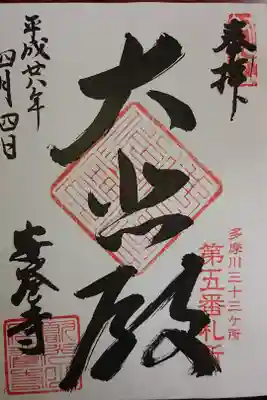 奉拝
多摩川三十三ヶ所
第五番札所
大悲殿
平成廿八年
四月四日
安養寺